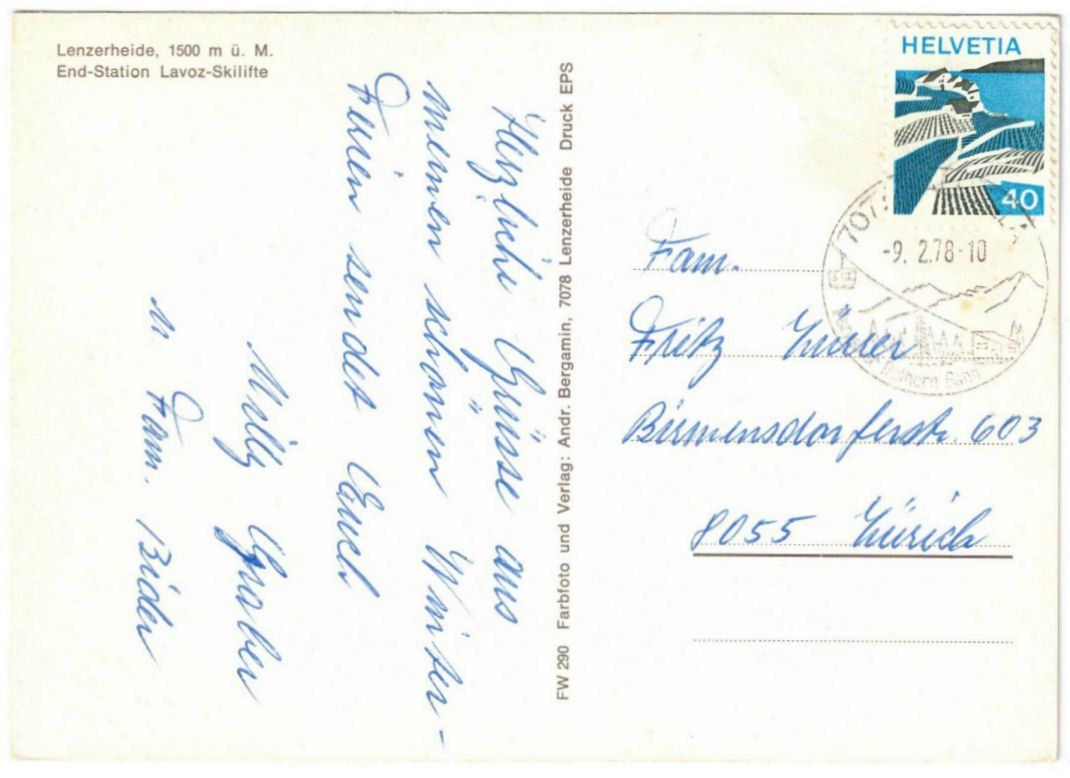 Lenzerheide, 1500 m ü. M.
End-Station Lavoz-Skilifte
Herzliche Grüsse aus
meinen schönen Winter-
Ferien sendet Euch
Milly Graber
u. Fam. Bider
FW 290 Farbfoto und Verlag: Andr. Bergamin, 7078 Lenzerheide Druck EPS
HELVETIA
40
-9. 2.78-10
Rothorn Bahn
Fam.
Fritz
Birmensdorferstr. 603
8055 Zürich